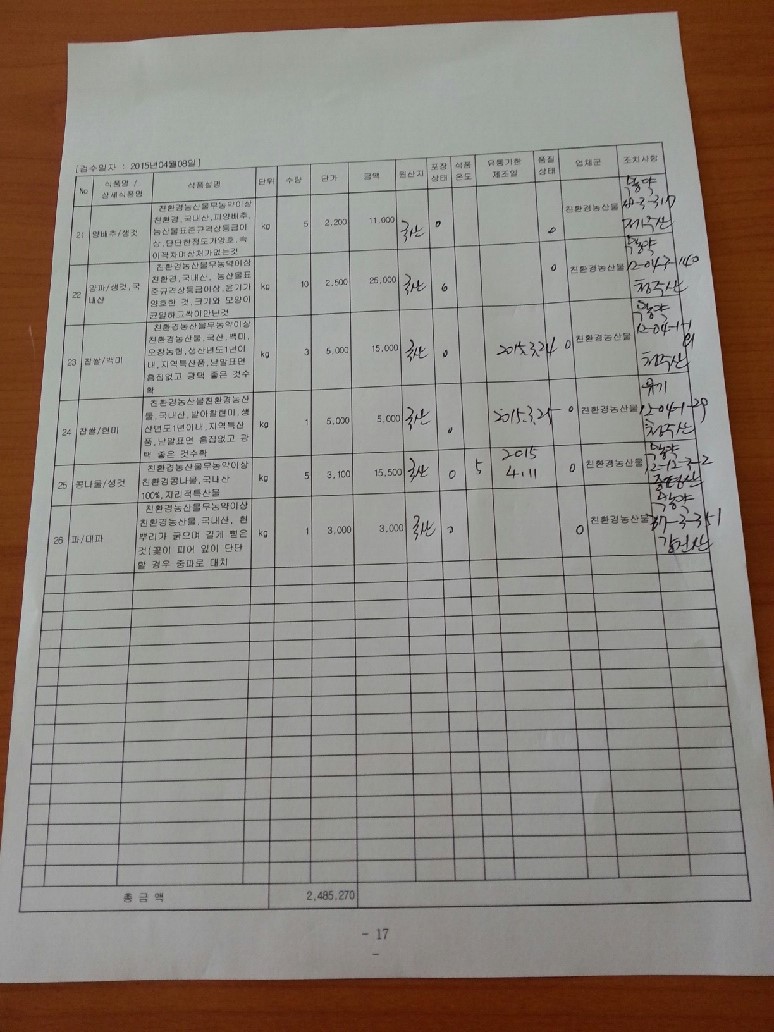 [검수일자 : 2015년04월08일]
No 식품명 / 상세식품명 식품설명 단위 수량 단가 금액 원산지 포장상태 식품온도 유통기한 제조일 품질상태 업체군 조치사항
21 양배추/생것 kg 5 2,200 11,000 국산 0 0 친환경농산물 무농약
친환경농산물무농약이상
친환경, 국내산,
농산물표준규격상등급이
제주산
22 양파/생것,국내산 kg 10 2,500 25,000 국산 0 0 친환경농산물 무농약
친환경농산물무농약이상
친환경,국내산, 농산물표
준규격상등급이상,
양호한 것,크기와 모양이
균일하고싹이안난것
청주산
23 찹쌀/백미 kg 3 5,000 15,000 국산 0 2015.3.24 0 친환경농산물 무농약
친환경농산물무농약이상
친환경농산물,국산,백미,
오창농협,생산년도1년이
내,지역특산품,낟알표면
흠집없고 광택 좋은 것수
확
청주산
24 찹쌀/현미 kg 1 5,000 5,000 국산 0 2015.3.25 0 친환경농산물 유기
친환경농산물친환경농산
물,국내산,발아찰현미,생
산년도1년이내,지역특산
품,낟알표면 흠집없고 광
택 좋은 것수확
12-04-1-29
청주산
25 콩나물/생것 kg 5 3,100 15,500 국산 0 5 2015 4.11 0 친환경농산물 무농약
친환경농산물무농약이상
친환경콩나물,국내산
100%,지리적특산물
12-12-3-2
증평산
26 파/대파 kg 1 3,000 3,000 국산 0 0 친환경농산물 무농약
친환경농산물무농약이상
친환경농산물,국내산, 흰
뿌리가 굵으며 길게 뻗은
것(꽃이 피어 잎이 단단
할 경우 중파로 대치
총 금 액 2,485,270
- 17
-